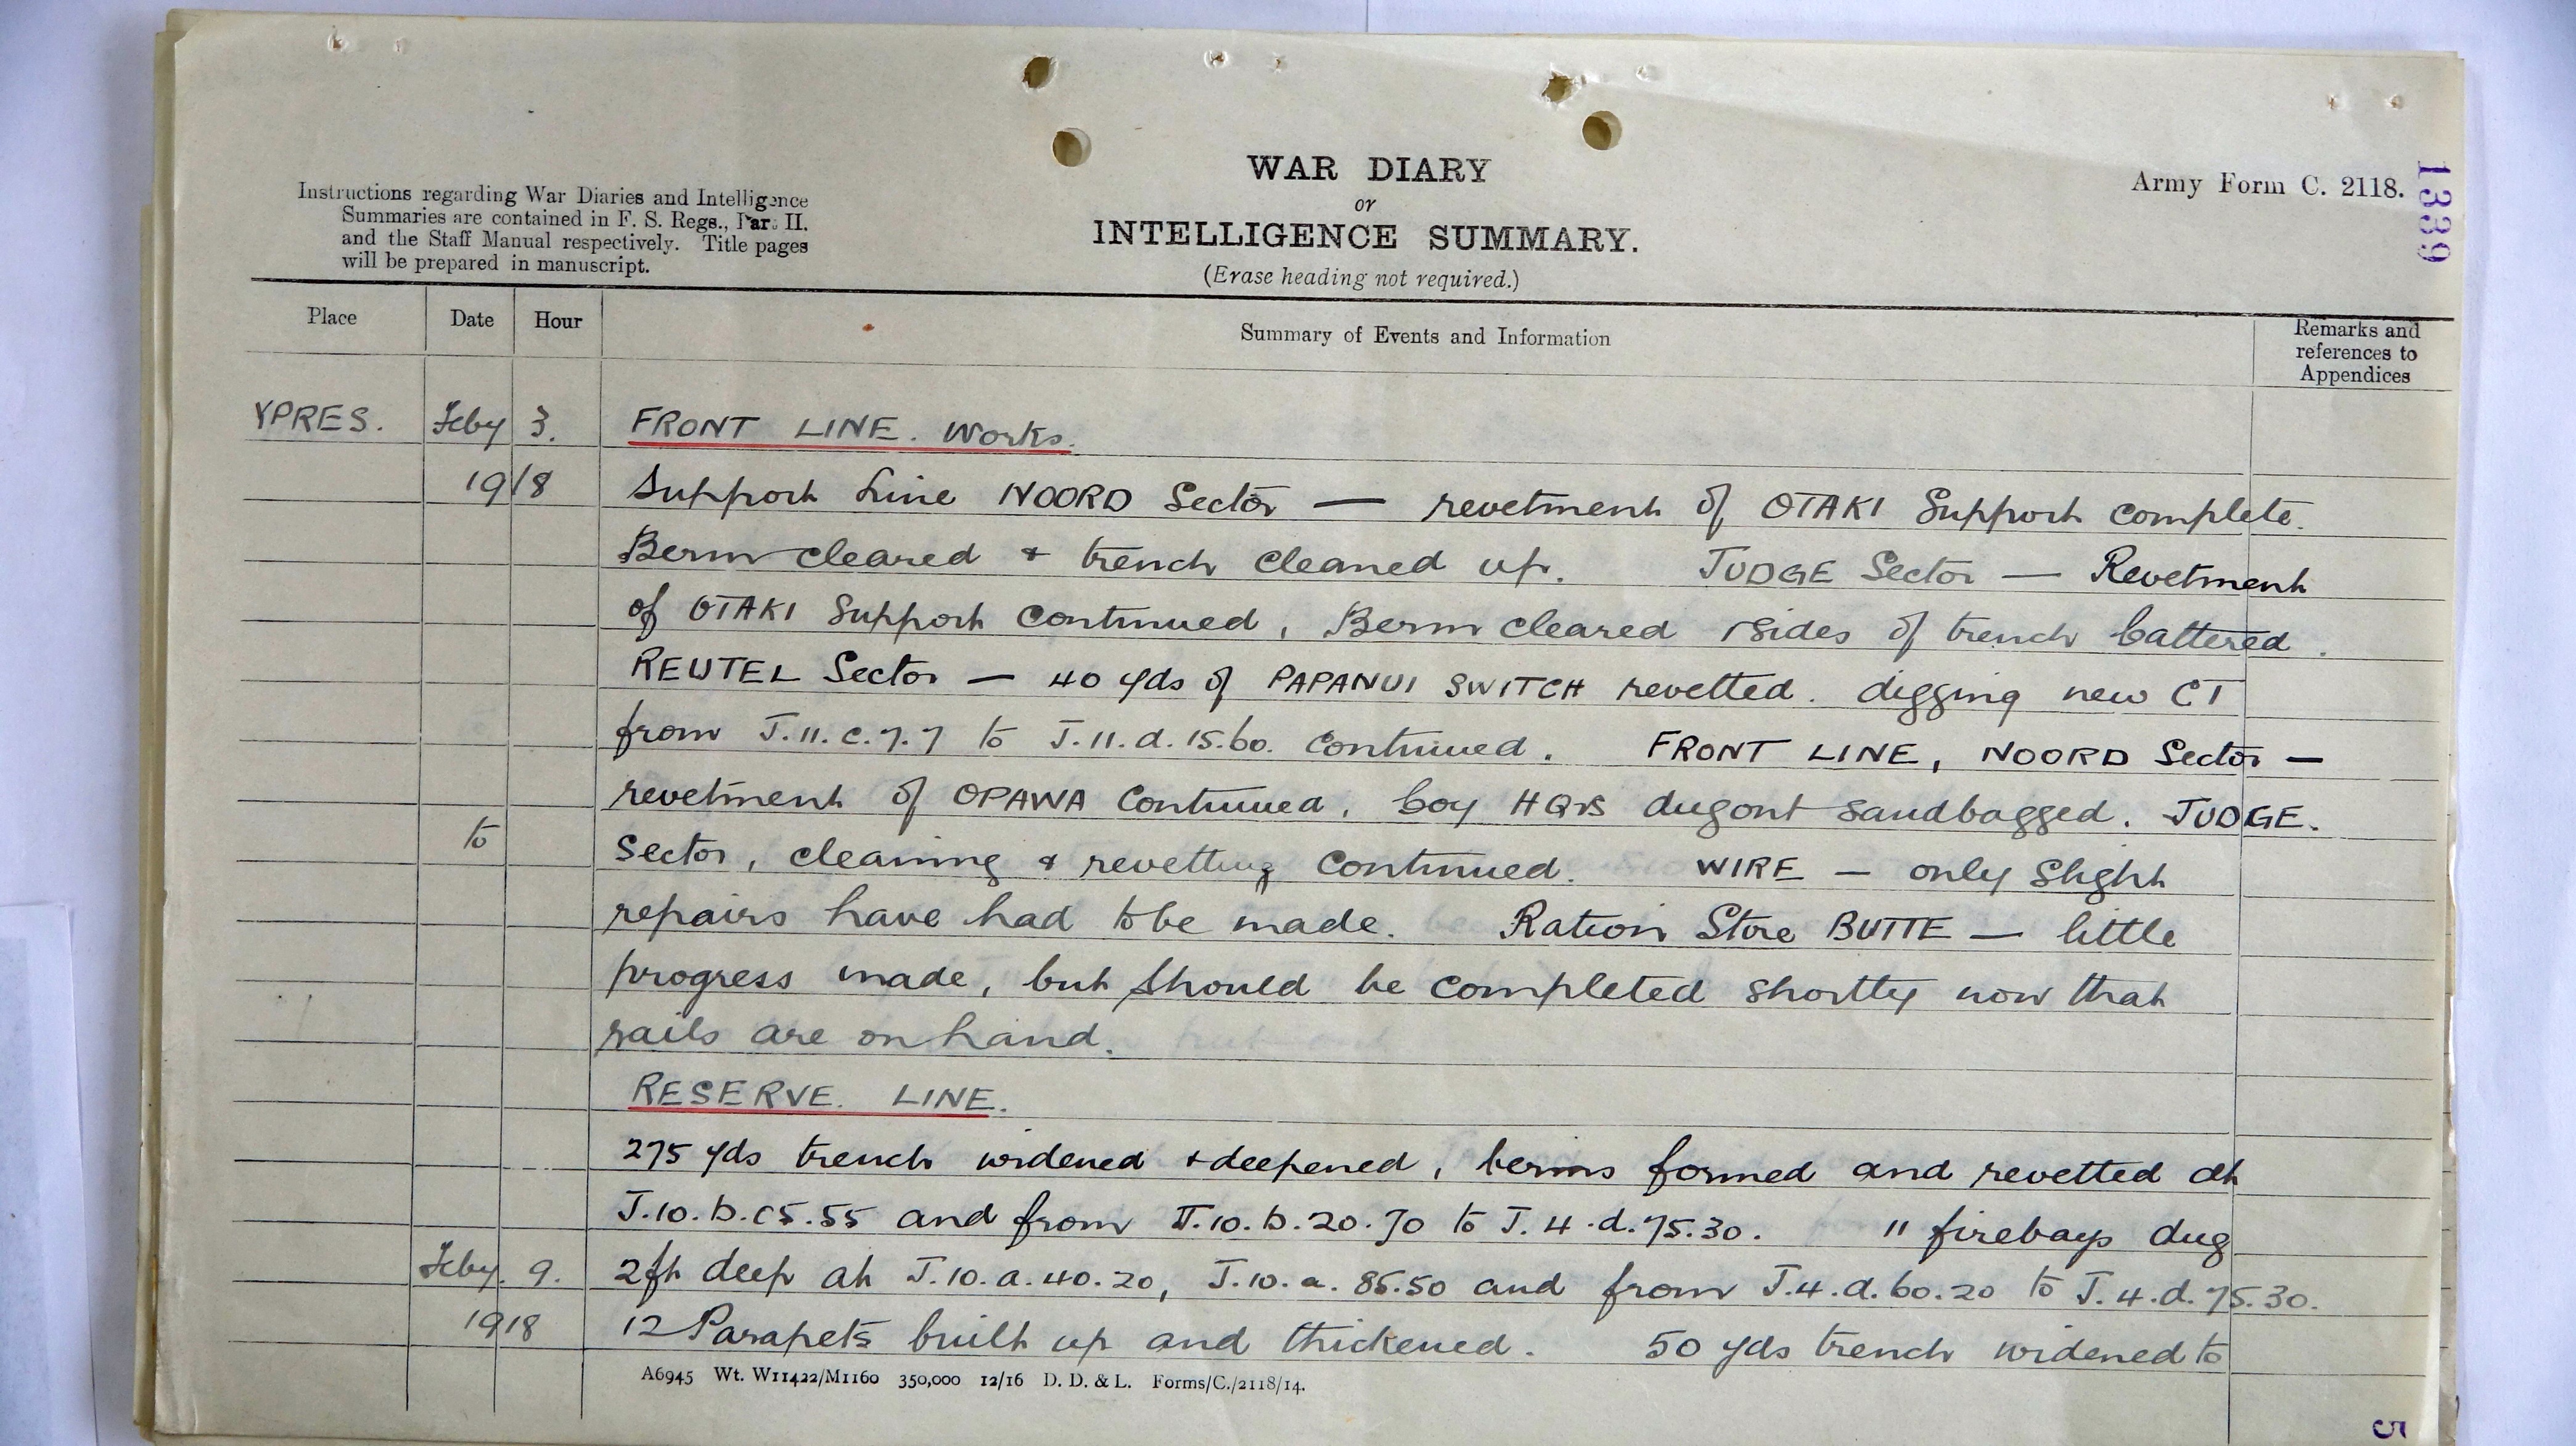 WAR DIARY
or
INTELLIGENCE SUMMARY.
(Erase heading not required.)
Instructions regarding War Diaries and Intelligence
Summaries are contained in F. S. Regs., Part II.
and the Staff Manual respectively. Title pages
will be prepared in manuscript.
Army Form C. 2118.
1339
Place Date Hour Summary of Events and Information Remarks and references to Appendices
YPRES. Feby 3. FRONT LINE. Works.
1918 Support Line NOORD Sector — revetment of OTAKI Support complete.
Berm cleared & trench cleaned up. JUDGE Sector — Revetment
of OTAKI Support continued, Berm cleared & sides of trench battered.
REUTEL Sector — 40 yds of PAPANUI SWITCH revetted. digging new CT
from J.11.c.7.7 to J.11.d.15.60. continued. FRONT LINE, NOORD Sector —
revetment of OPAWA continued, Coy HQrs dugout sandbagged. JUDGE.
to Sector, cleaning & revetting continued. WIRE — only slight
repairs have had to be made. Ration Store BUTTE — little
progress made, but should be completed shortly now that
rails are on hand.
RESERVE. LINE.
275 yds trench widened & deepened, berms formed and revetted at
J.10.b.05.55 and from J.10.b.20.70 to J.4.d.75.30. 11 firebays dug
Feby. 9. 2ft deep at J.10.a.40.20, J.10.a.85.50 and from J.4.d.60.20 to J.4.d.75.30.
1918 12 Parapets built up and thickened. 50 yds trench widened to
A6945 Wt. W11422/M1160 350,000 12/16 D. D. & L. Forms/C./2118/14.
5